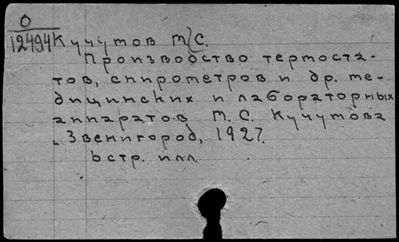 О
12494 Кучутов М. С.
Производство термоста-
тов, спирометров и др. ме-
дицинских и лабораторных
аппаратов М. С. Кучутова
Звенигород, 1927.
6 стр. илл.